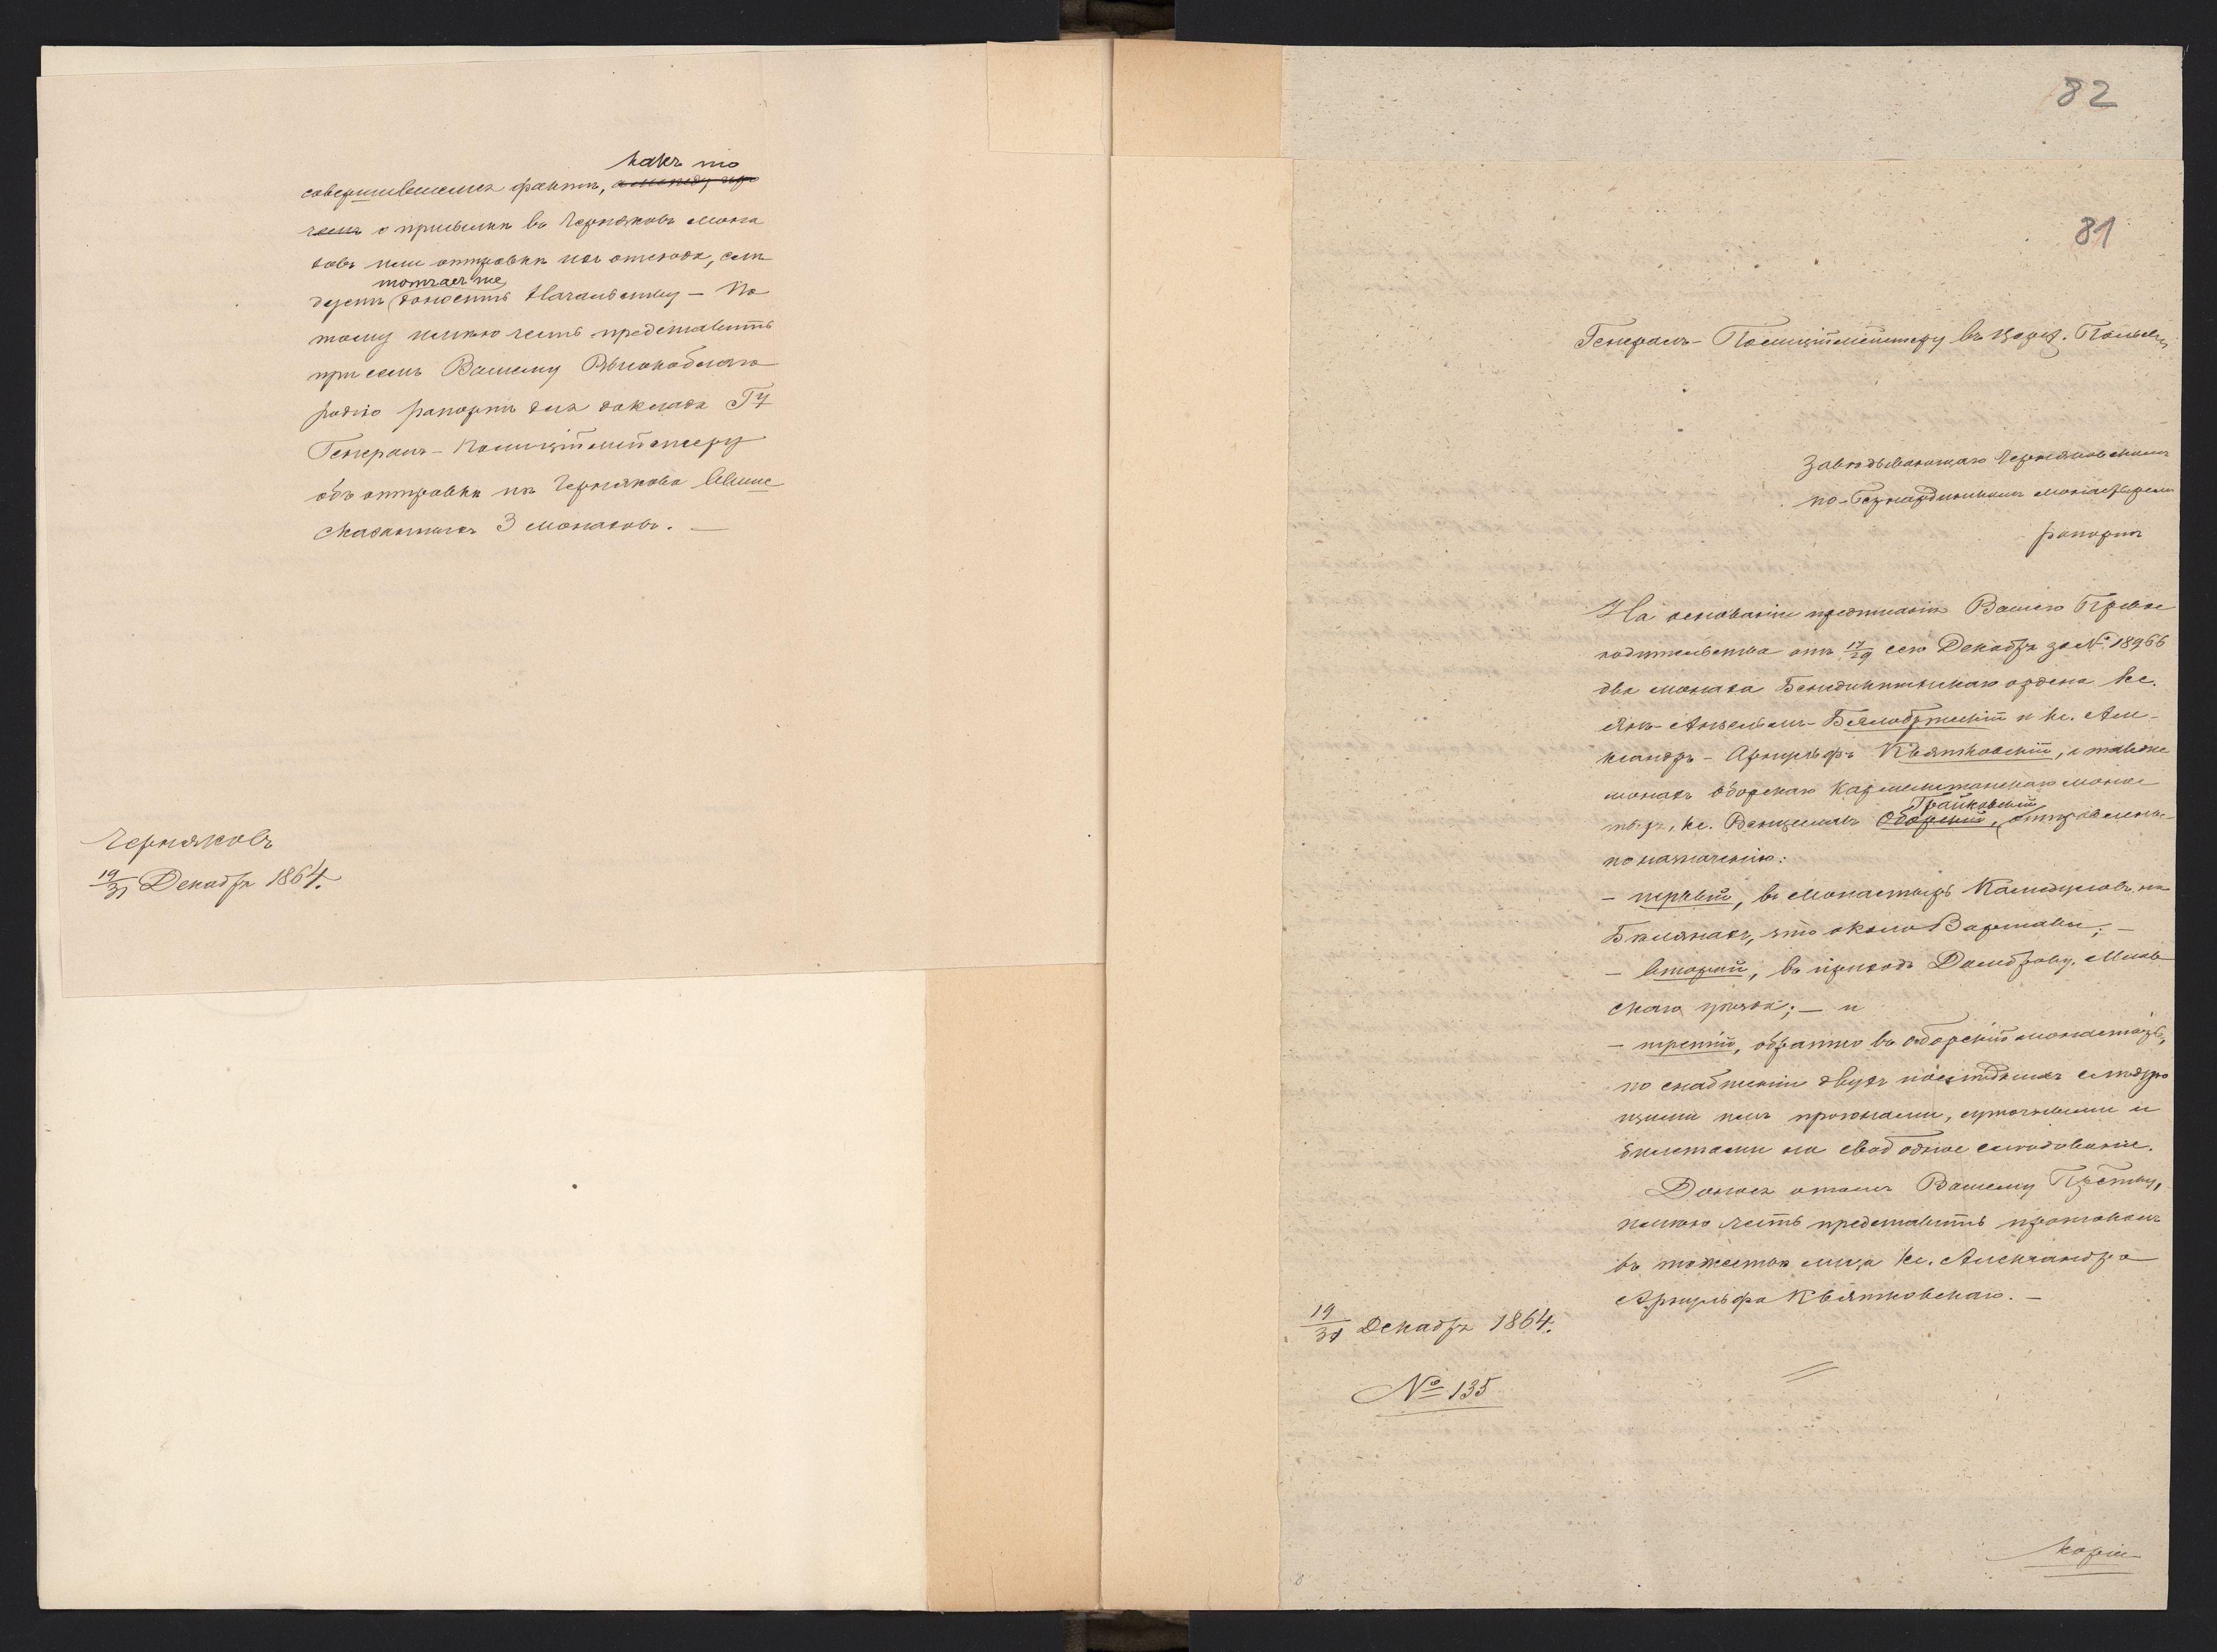 какъ то
совершившемся фактѣ, а между про
чемъ о присылкѣ въ Черняковъ мона
ховъ или отправкѣ ихъ отсюда, слѣ
тотчасъ же
дуетъ доносить Начальству — По
тому имѣю честь представить
при семъ Вашему Высокоблаго
родію рапортъ для доклада Гу
Генералъ-Полиціймейстеру
объ отправкѣ изъ Чернякова выше
сказанныхъ 3 монаховъ. —
Черняковъ
19/31 Декабря 1864.
82
81
Генералъ-Полиціймейстеру въ Царст. Польскомъ
Завѣдывающаго Черняковскимъ
по-Бернардинскимъ монастыремъ
рапортъ
На основаніи предписанія Вашего Превос
ходительства отъ 17/29 сего Декабря за № 18966
два монаха Бенедиктинскаго ордена кс.
Янъ-Ансельмъ-Бялобржескій и кс. Але-
ксандръ-Арнульфъ Квятковскій, а также
монахъ Оборскаго Кармелитанскаго монас
Грайковскій
тыря, кс. Венцеславъ Оборскій, отправлены
по назначенію:
— первый, въ монастырь Камедуловъ на
Бѣлянахъ, что около Варшавы; —
— второй, въ приходъ Домброву, Млав
скаго уѣзда; — и
— третій, обратно въ Оборскій монастырь,
по снабженіи двухъ послѣднихъ слѣдую
щими имъ прогонами, суточными и
билетами на свободное слѣдованіе.
Донося о томъ Вашему Прству,
имѣю честь представить протоколъ
въ тожествѣ лица кс. Александра
Арнульфа Квятковскаго. —
19/31 Декабря 1864.
№ 135
Копія